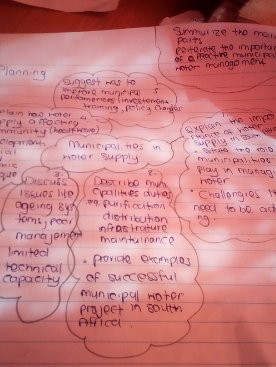 Summarize the main
parts
Reiterate the importan
of effective municipal
water management
Planning
Suggest ways to
improve municipal
performances (investment
training, policy changes
plain how water
pply affecting
mmunity (healthcare)
Municipalities in
water Supply
Explain the impo
of water
supply
State the role
municipalities
play in managi
water
Challenges t
need to be
ng
Discuss
issues like
ageing sys
tems, poor
management
limited
technical
capacity
Describe muni
cipalities duties
eg. purification
distribution
infrastructure
maintainance
provide examples
of successful
municipal water
project in South
Africa